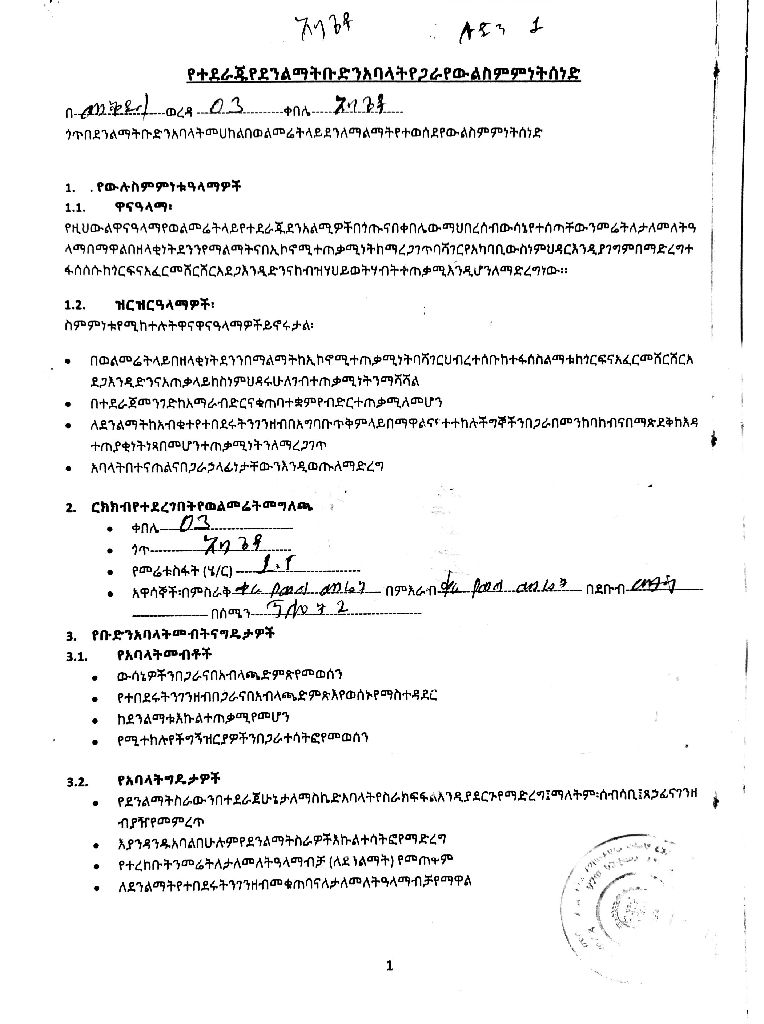 አዴን 1
የተደራጁየደንልማትቡድንአባላትየጋራየውልስምምነትሰነድ
በ ወረዳ 03 ቀበሌ
ጎጥበደንልማትቡድንአባላትመሀከልበወልመሬትላይደንለማልማትየተወሰደየውልስምምነትሰነድ
1. .የውሉስምምነቱዓላማዎች
1.1. ዋናዓላማ፡
የዚህውልዋናዓላማየወልመሬትላይየተደራጁደንአልሚዎችበጎጡናበቀበሌውማህበረሰብውሳኔየተሰጣቸውንመሬትለታለመለትዓ
ላማበማዋልበዘላቂነትደንንየማልማትናበኢኮኖሚተጠቃሚነትከማረጋገጥባሻገርየአካባቢውስነምህዳርእንዲያገግምበማድረግተ
ፋሰሰሱከጎርፍናአፈርመሸርሸርአደጋእንዲድንናከብዝሃህይወትሃብትተጠቃሚእንዲሆንለማድረግነው።
1.2. ዝርዝርዓላማዎች፡
ስምምነቱየሚከተሉትዋናዋናዓላማዎችይኖሩታል፡
• በወልመሬትላይበዘላቂነትደንንበማልማትከኢኮኖሚተጠቃሚነትባሻገርህብረተሰቡከተፋሰስልማቱከጎርፍናአፈርመሸርሸርአ
ደጋእንዲድንናአጠቃላይከስነምህዳሩሁለገብተጠቃሚነትንማሻሻል
• በተደራጀመንገድከአማራብድርናቁጠባተቋምየብድርተጠቃሚለመሆን
• ለደንልማትከአብቁተየተበደሩትንገንዘብበአግባቡጥቅምላይበማዋልና ተተከሉችግኞችንበጋራበመንከባከብናበማጽደቅከእዳ
ተጠያቂነትነጻበመሆንተጠቃሚነትንለማረጋገጥ
• አባላትበተናጠልናበጋራኃላፊነታቸውንእንዲወጡለማድረግ
2. ርክክብየተደረገበትየወልመሬትመግለጫ
• ቀበሌ 03
• ጎጥ
• የመሬቱስፋት (ሄ/ር) 1.1
• አዋሳኞች፡በምስራቅ በምእራብ በደቡብ
በሰሜን 2
3. የቡድንአባላትመብትናግዴታዎች
3.1. የአባላትመብቶች
• ውሳኔዎችንበጋራናበአብላጫድምጽየመወሰን
• የተበደሩትንገንዘብበጋራናበአብላጫድምጽእየወሰኑየማስተዳደር
• ከደንልማቱእኩልተጠቃሚየመሆን
• የሚተከሉየችግኝዝርያዎችንበጋራተሳትፎየመወሰን
3.2. የአባላትግዴታዎች
• የደንልማትስራውንበተደራጀሁኔታለማስኬድአባላትየስራክፍፍልእንዲያደርጉየማድረግ፤ማለትም፡ሰብሳቢ፤ጸኃፊናገንዘ
ብያዥየመምረጥ
• እያንዳንዱአባልበሁሉምየደንልማትስራዎችእኩልተሳትፎየማድረግ
• የተረከቡትንመሬትለታለመለትዓላማብቻ (ለደ ነልማት) የመጠቀም
• ለደንልማትየተበደሩትንገንዘብመቁጠባናለታለመለትዓላማብቻየማዋል
1